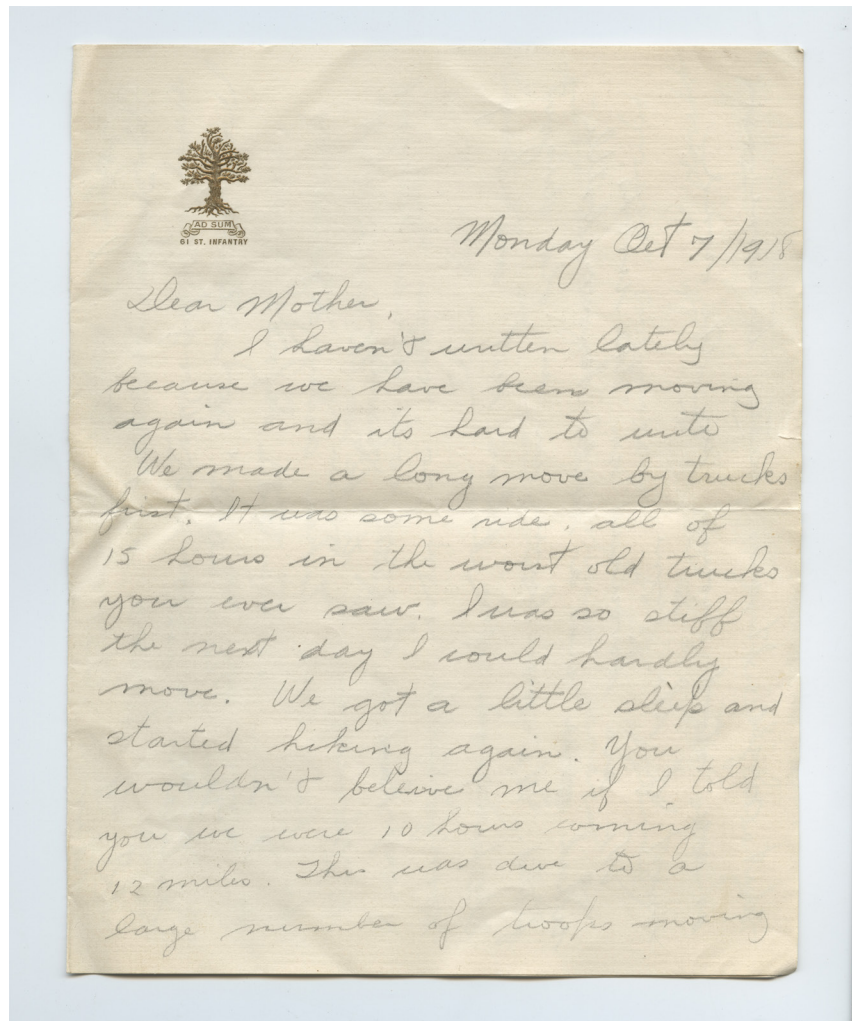 AD SUM
61 ST. INFANTRY
Monday Oct 7/1918
Dear Mother,
I haven't written lately
because we have been moving
again and its hard to write
We made a long move by trucks
first. It was some ride, all of
15 hours in the worst old trucks
you ever saw. I was so stiff
the next day I could hardly
move. We got a little sleep and
started hiking again. You
wouldn't beleive me if I told
you we were 10 hours coming
12 miles. This was due to a
large number of troops moving